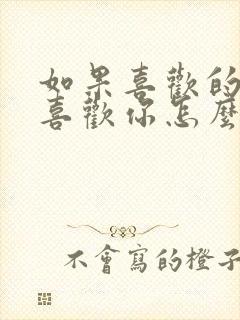 如果喜歡的
喜歡你怎麼
不會寫的橙子